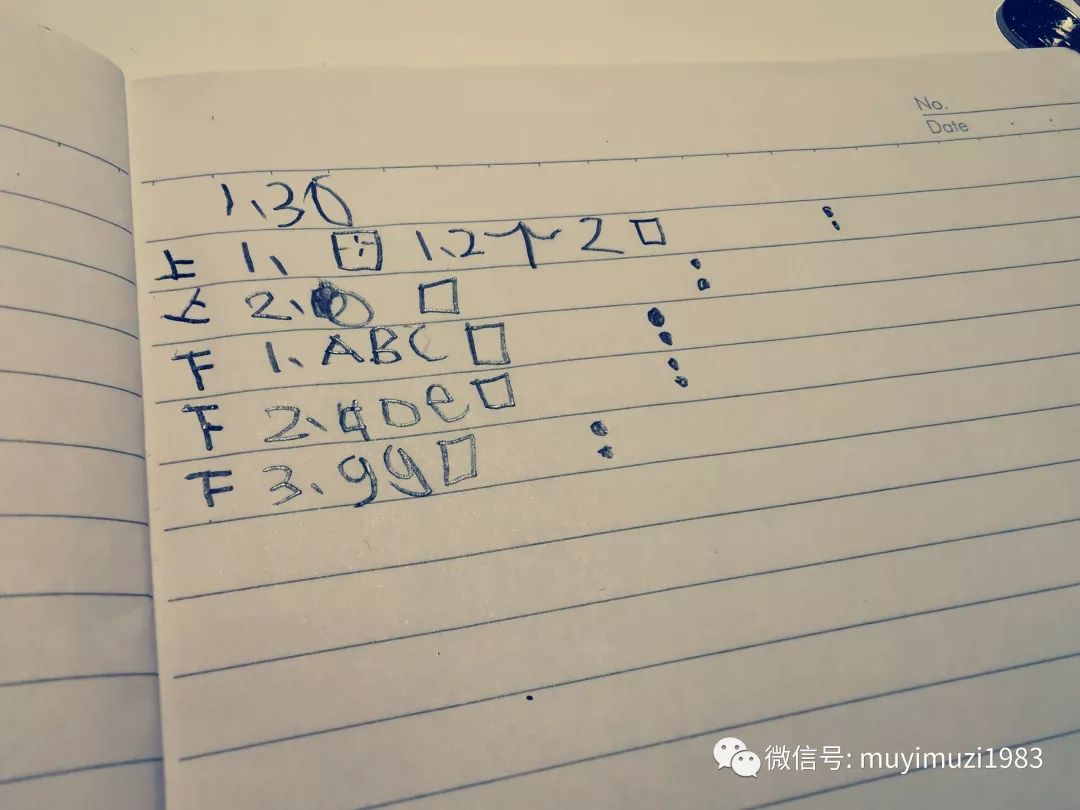 No.
Date
1、30
上 1、田 1、2个2□ :
上 2、□ :
下 1、ABC□ :
下 2、qoe□ :
下 3、gg□ :
微信号: muyimuzi1983